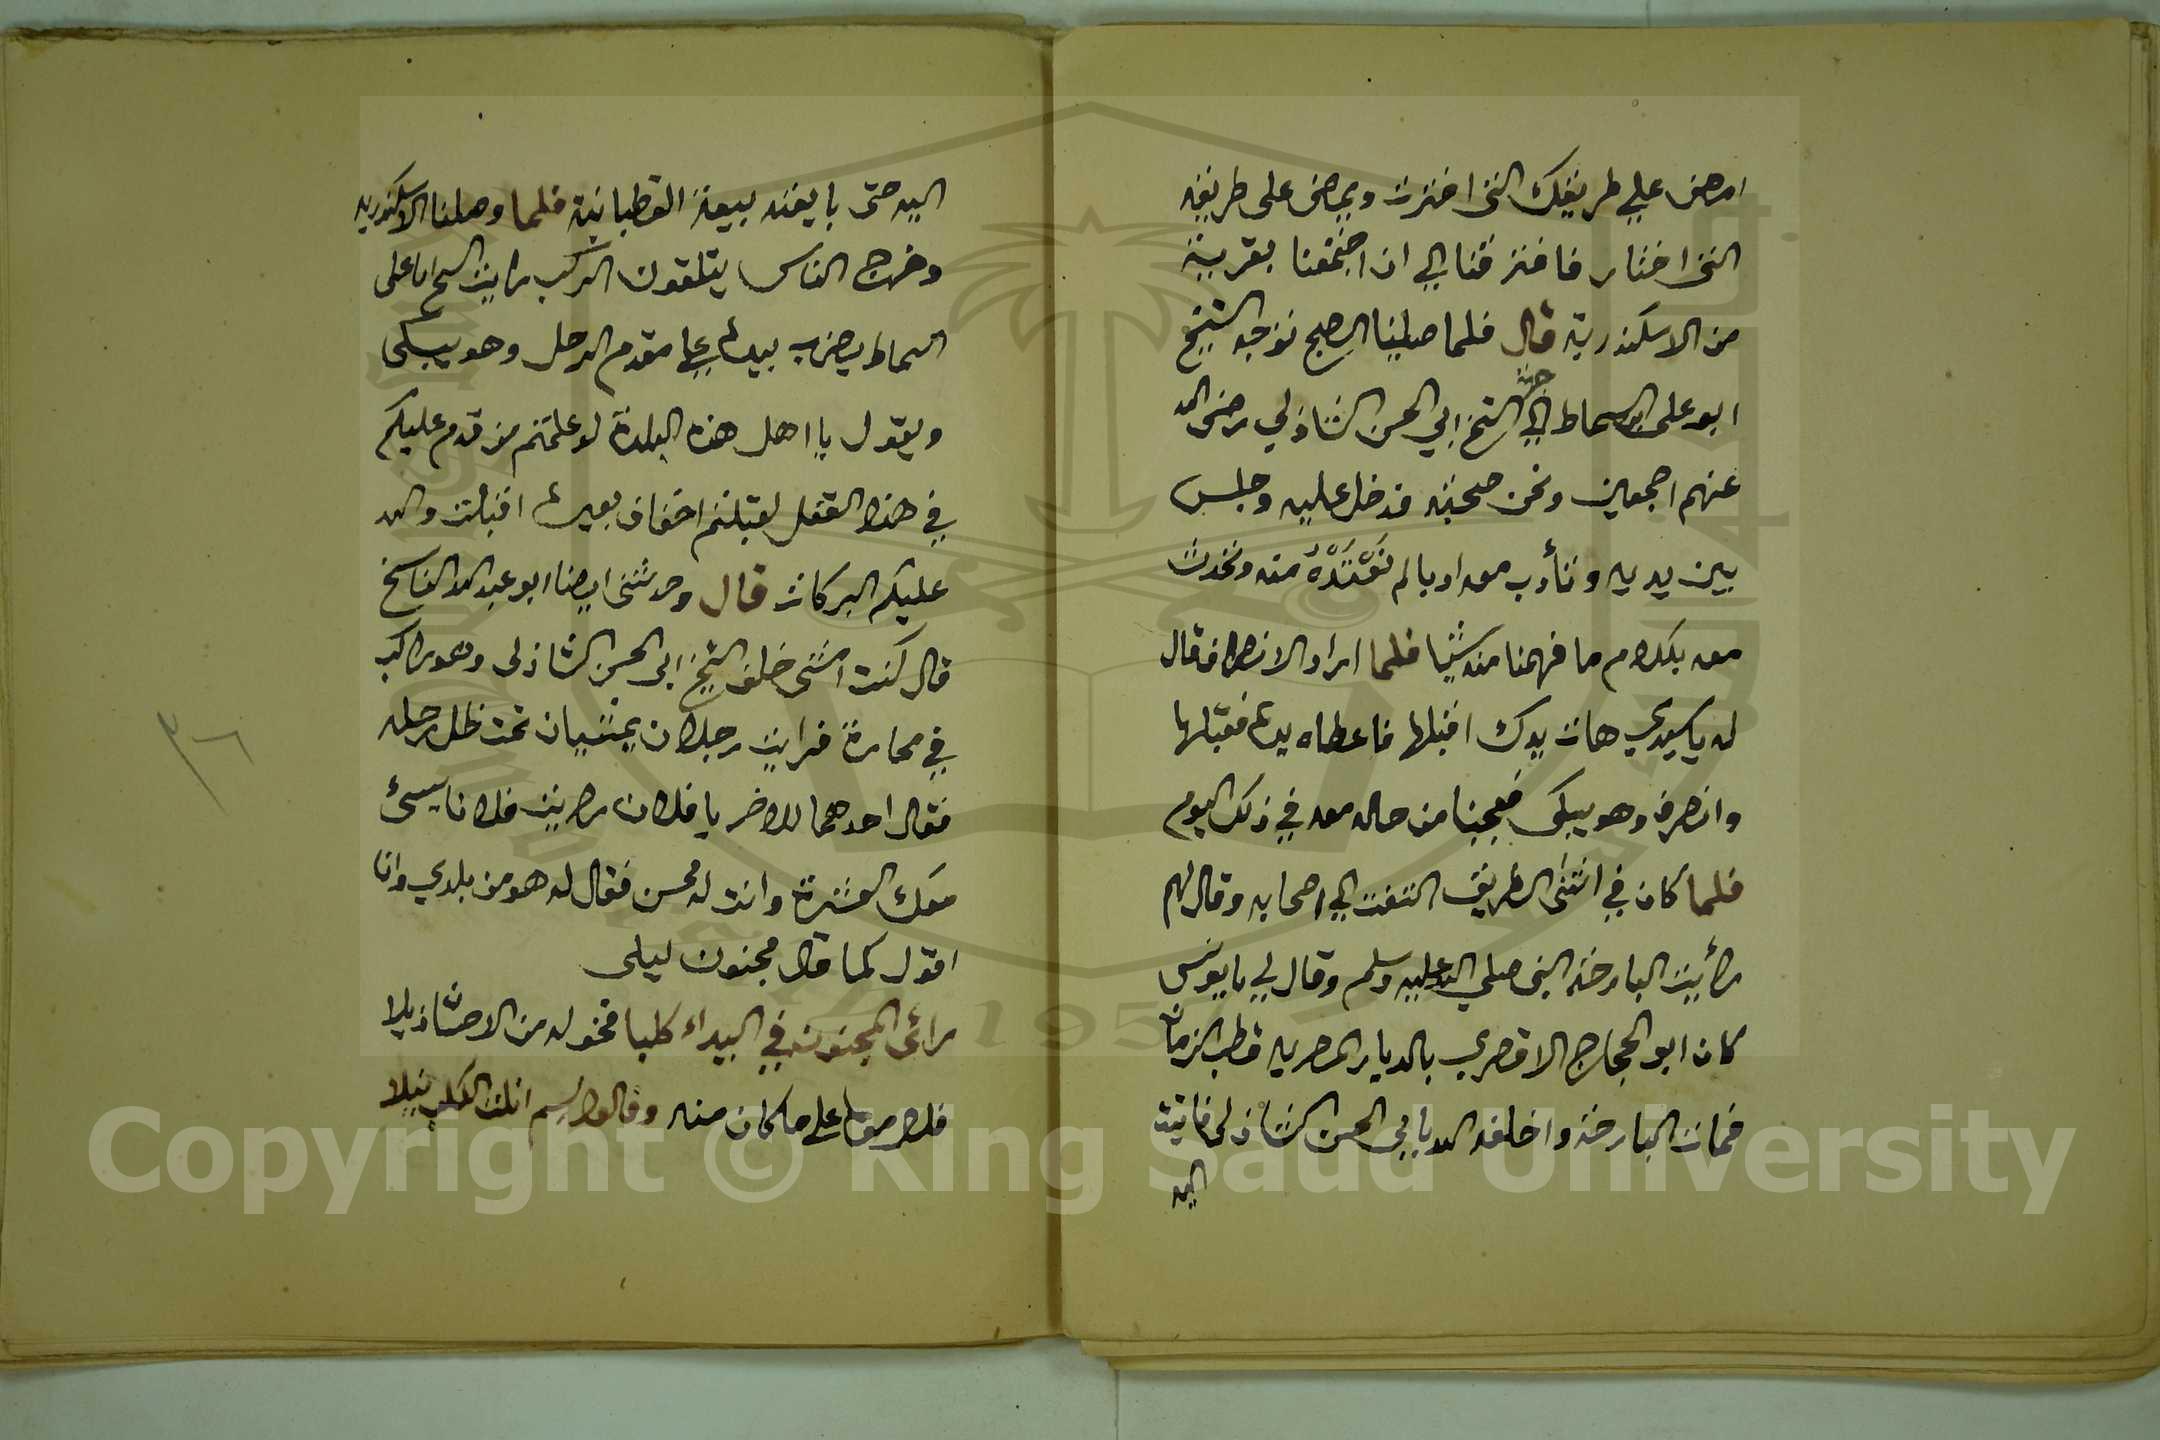 امض علي طريقك التى اخترت ويمضى على طريقته
التى اختار فافترقنا الي ان اجتمعنا بقريبة
من الاسكندرية قال فلما صلينا الصبح توجه الشيخ
ابو على السماط الي خيمة الشيخ ابي الحسن الشاذلي رضى الله
عنهم اجمعين ونحن صحبته فدخل عليه وجلس
بين يديه وتأدب معه ادبا لم نعتده منه وتحدث
معه بكلام ما فهمنا منه شيئا فلما اراد الانصراف قال
له ياسيدي هات يدك اقبلها فاعطاه يده فقبلها
وانصرف وهو يبكى فعجبنا من حاله معه في ذلك اليوم
فلما كان في اثنى الطريق التفت الي اصحابه وقال لهم
رأيت البارحة النبى صلي الله عليه وسلم وقال لي يا يونس
كان ابو الحجاج الاقصري بالديار المصرية قطب الزمان
فمات البارحة واخلفه الله بابي الحسن الشاذلى فاتيت
اليه
اليه حتى بايعته بيعة القطبانية فلما وصلنا الاسكندريه
وخرج الناس يتلقون الركب رايت الشيخ ابا على
السماط يضرب بيده علي مقدم الرحل وهو يبكى
ويقول يا اهل هذه البلدة لو علمتم من قدم عليكم
في هذا القفل لقبلتم اخفاف بعيره اقبلت والله
عليكم البركات قال وحدثنى ايضا ابو عبد الله الناسخ
قال كنت امشى خلف الشيخ ابى الحسن الشاذلى وهو راكب
في محارة فرايت رجلان يمشيان تحت ظل رحله
فقال احدهما للاخر يا فلان رايت فلانا يسئ
معك العشرة وانت له محسن فقال له هو من بلدي وانا
اقول كما قال مجنون ليلى
رائى المجنون في البيداء كلبا فخوله من الاحسا ذيلا
فلاموه على ما كان منه وقالوا لم انلت الكلب نيلا
٣٦
Copyright © King Saud University
1957